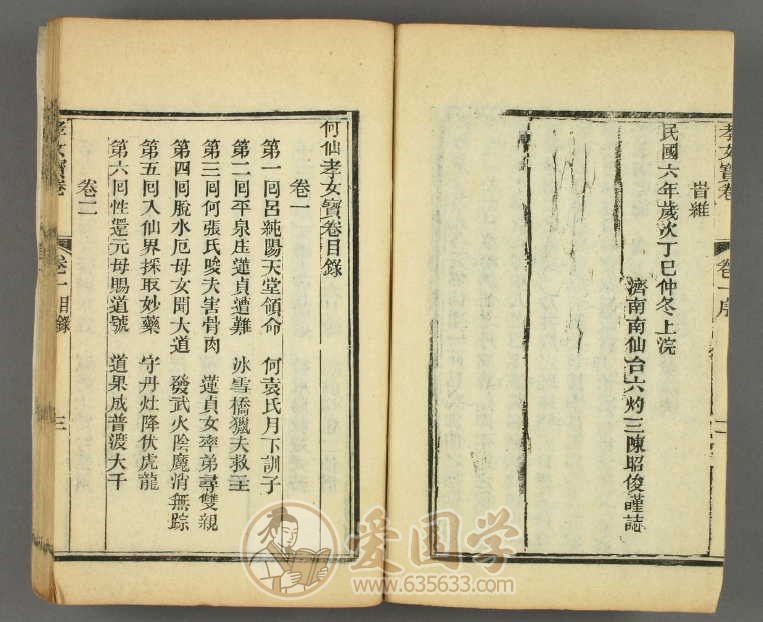 孝女寶卷
卷一序
二
旹維
民國六年歲次丁巳仲冬上浣
濟南南仙台六灼三陳昭俊謹誌
何仙孝女寶卷目錄
卷一
第一囘呂純陽天堂領命 何袁氏月下訓子
第二囘平泉庄蓮貞遭難 氷雪橋獵夫救主
第三囘何張氏唆夫害骨肉 蓮貞女率弟尋雙親
第四囘脫水厄母女聞大道 發武火陰魔消無踪
第五囘入仙界採取妙藥 守丹灶降伏虎龍
第六囘性還元母賜道號 道果成普渡大千
卷二
孝女寶卷
卷一目錄
三
爱国学
www.635633.com